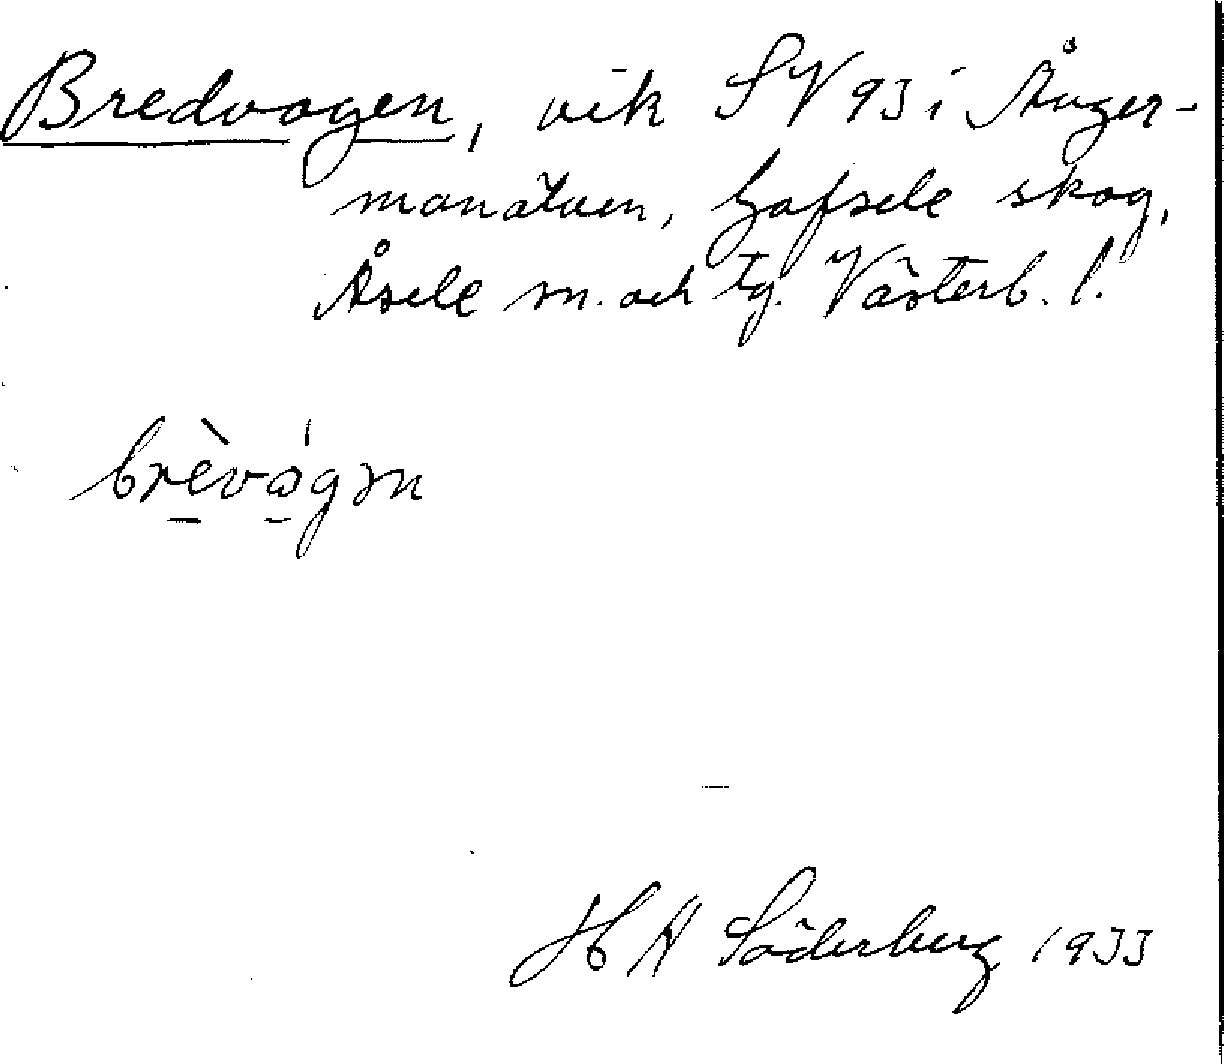 Bredvagen, vik SV 93 i Ånger-
manälven, Gafsele skog,
Åsele sn. och tg. Västerb. l.
brèvágṃ
H A Söderberg 1933